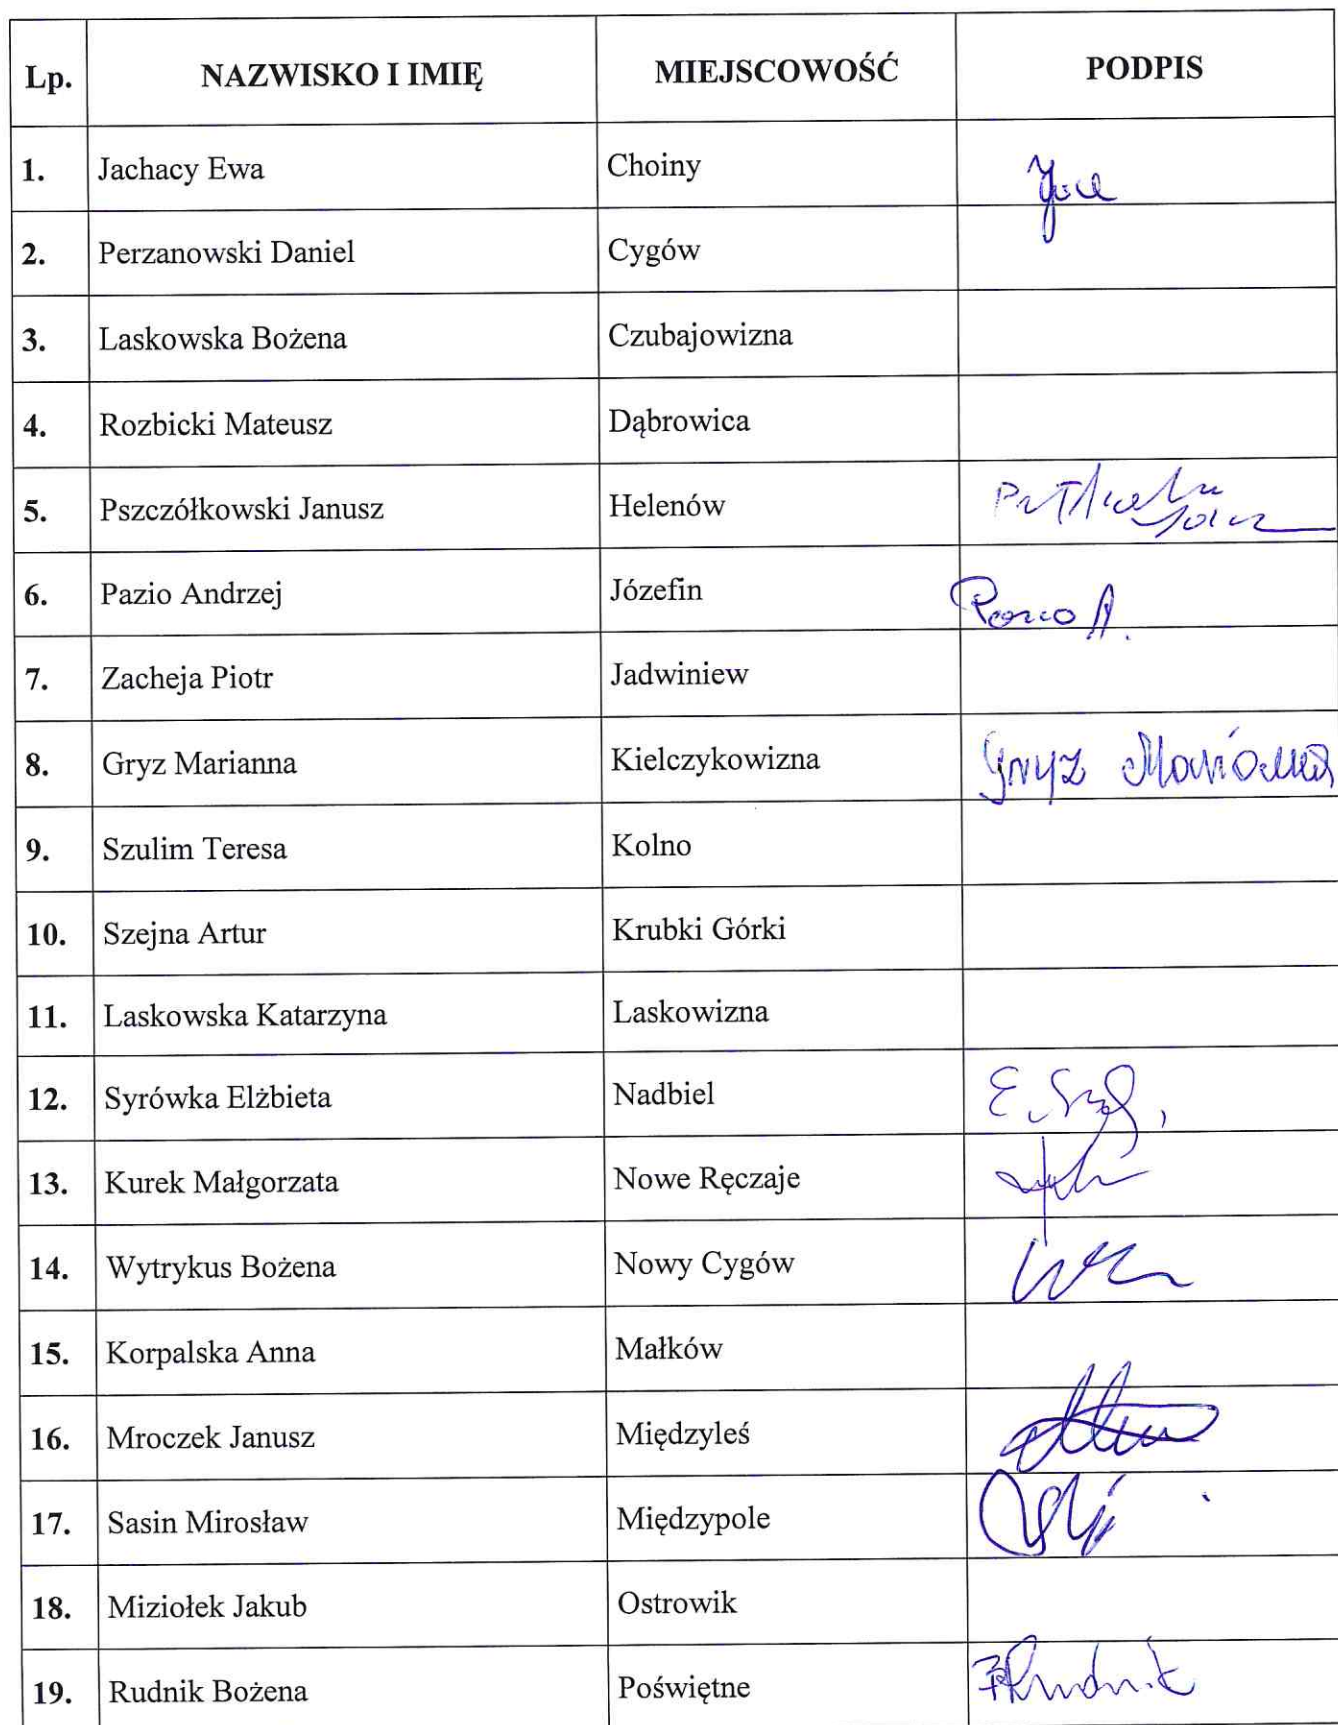 Lp. NAZWISKO I IMIĘ MIEJSCOWOŚĆ PODPIS
1. Jachacy Ewa Choiny
2. Perzanowski Daniel Cygów
3. Laskowska Bożena Czubajowizna
4. Rozbicki Mateusz Dąbrowica
5. Pszczółkowski Janusz Helenów
6. Pazio Andrzej Józefin Pazio A.
7. Zacheja Piotr Jadwiniew
8. Gryz Marianna Kielczykowizna Gryz Marianna
9. Szulim Teresa Kolno
10. Szejna Artur Krubki Górki
11. Laskowska Katarzyna Laskowizna
12. Syrówka Elżbieta Nadbiel
13. Kurek Małgorzata Nowe Ręczaje
14. Wytrykus Bożena Nowy Cygów
15. Korpalska Anna Małków
16. Mroczek Janusz Międzyleś
17. Sasin Mirosław Międzypole
18. Miziołek Jakub Ostrowik
19. Rudnik Bożena Poświętne Rudnik